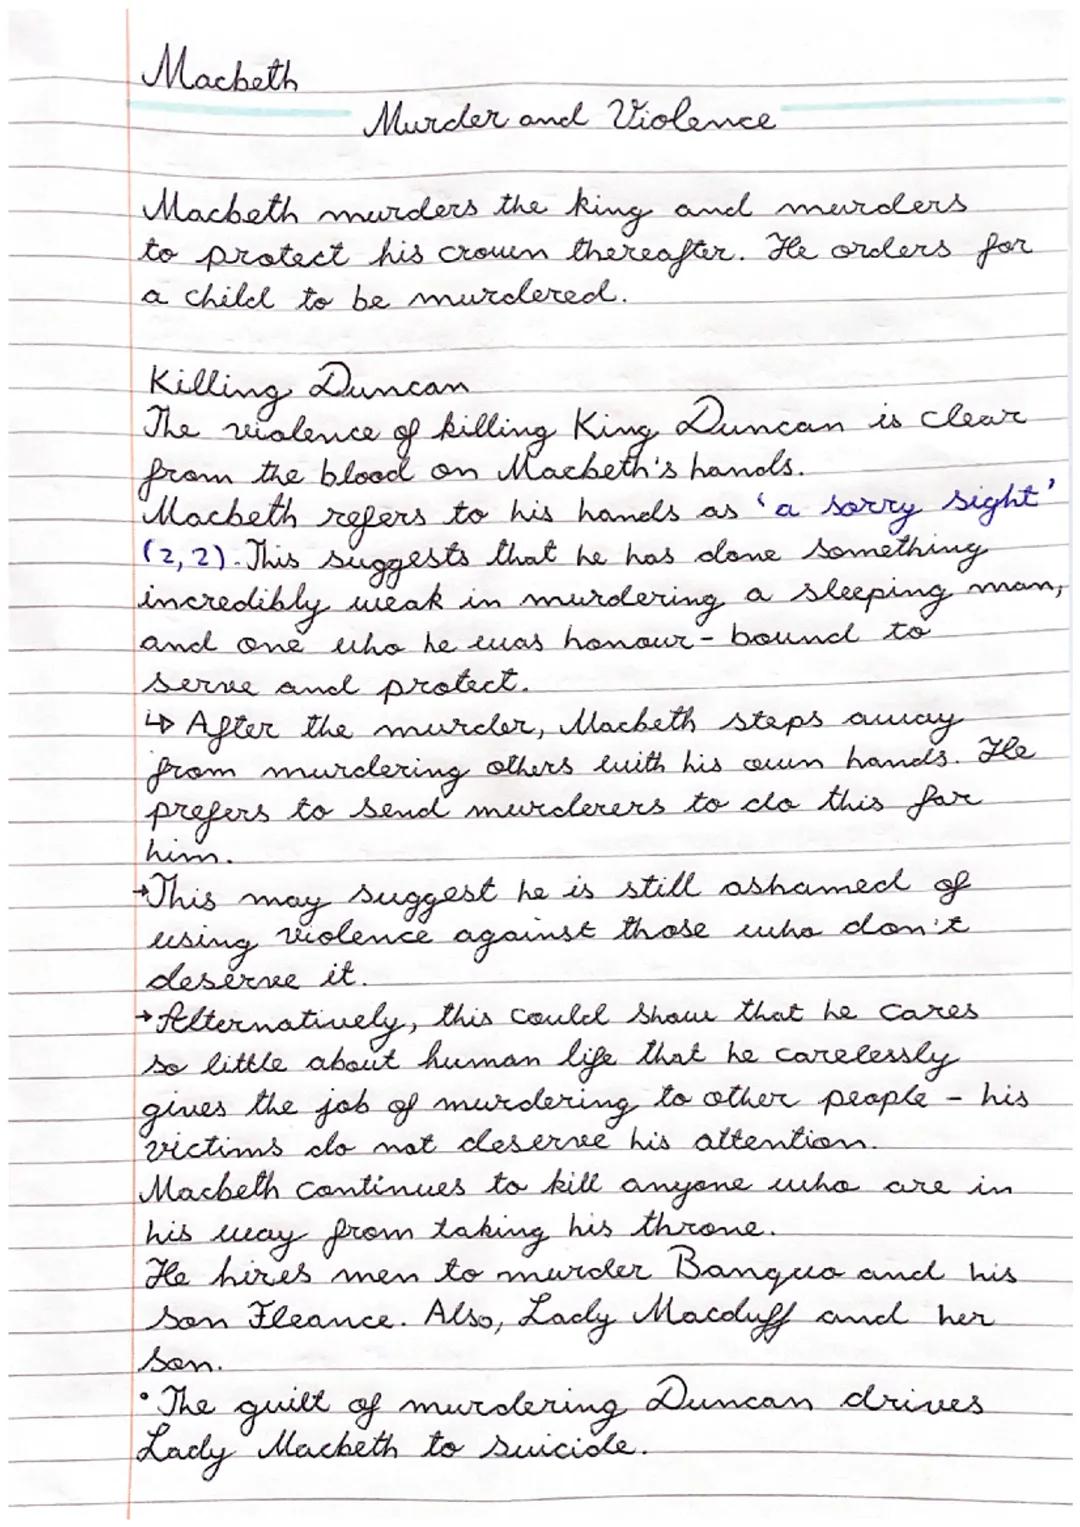 Macbeth
Murder and Violence
Macbeth murders the king and murders
to protect his crown thereafter. He orders for
a child to be murdered.
Killing Duncan
The violence of killing King Duncan is clear
from the blood on Macbeth's hands.
Macbeth refers to his hands as 'a sorry sight'
(2,2). This suggests that he has done something
incredibly weak in murdering a sleeping man,
and one who he was honour-bound to
serve and protect.
↳ After the murder, Macbeth steps away
from murdering others with his own hands. He
prefers to send murderers to do this for
him.
→This may suggest he is still ashamed of
using violence against those who don't
deserve it.
→Alternatively, this could show that he cares
so little about human life that he carelessly
gives the job of murdering to other people - his
victims do not deserve his attention.
Macbeth continues to kill anyone who are in
his way from taking his throne.
He hires men to murder Banquo and his
son Fleance. Also, Lady Macduff and her
son.
• The guilt of murdering Duncan drives
Lady Macbeth to suicide.